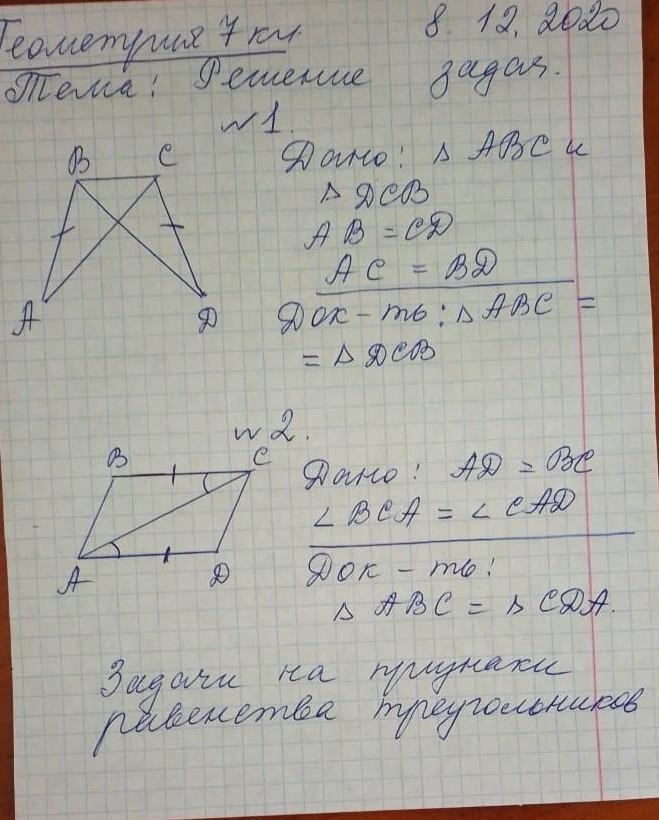 Геометрия 7 кл. 8. 12. 2020
Тема: Решение задач.
№1.
B C
A D
Дано: △ ABC и
△ DCB
AB = CD
AC = BD
Док-ть: △ ABC =
= △ DCB
№2.
B C
A D
Дано: AD = BC
∠ BCA = ∠ CAD
Док-ть:
△ ABC = △ CDA.
Задачи на признаки
равенства треугольников